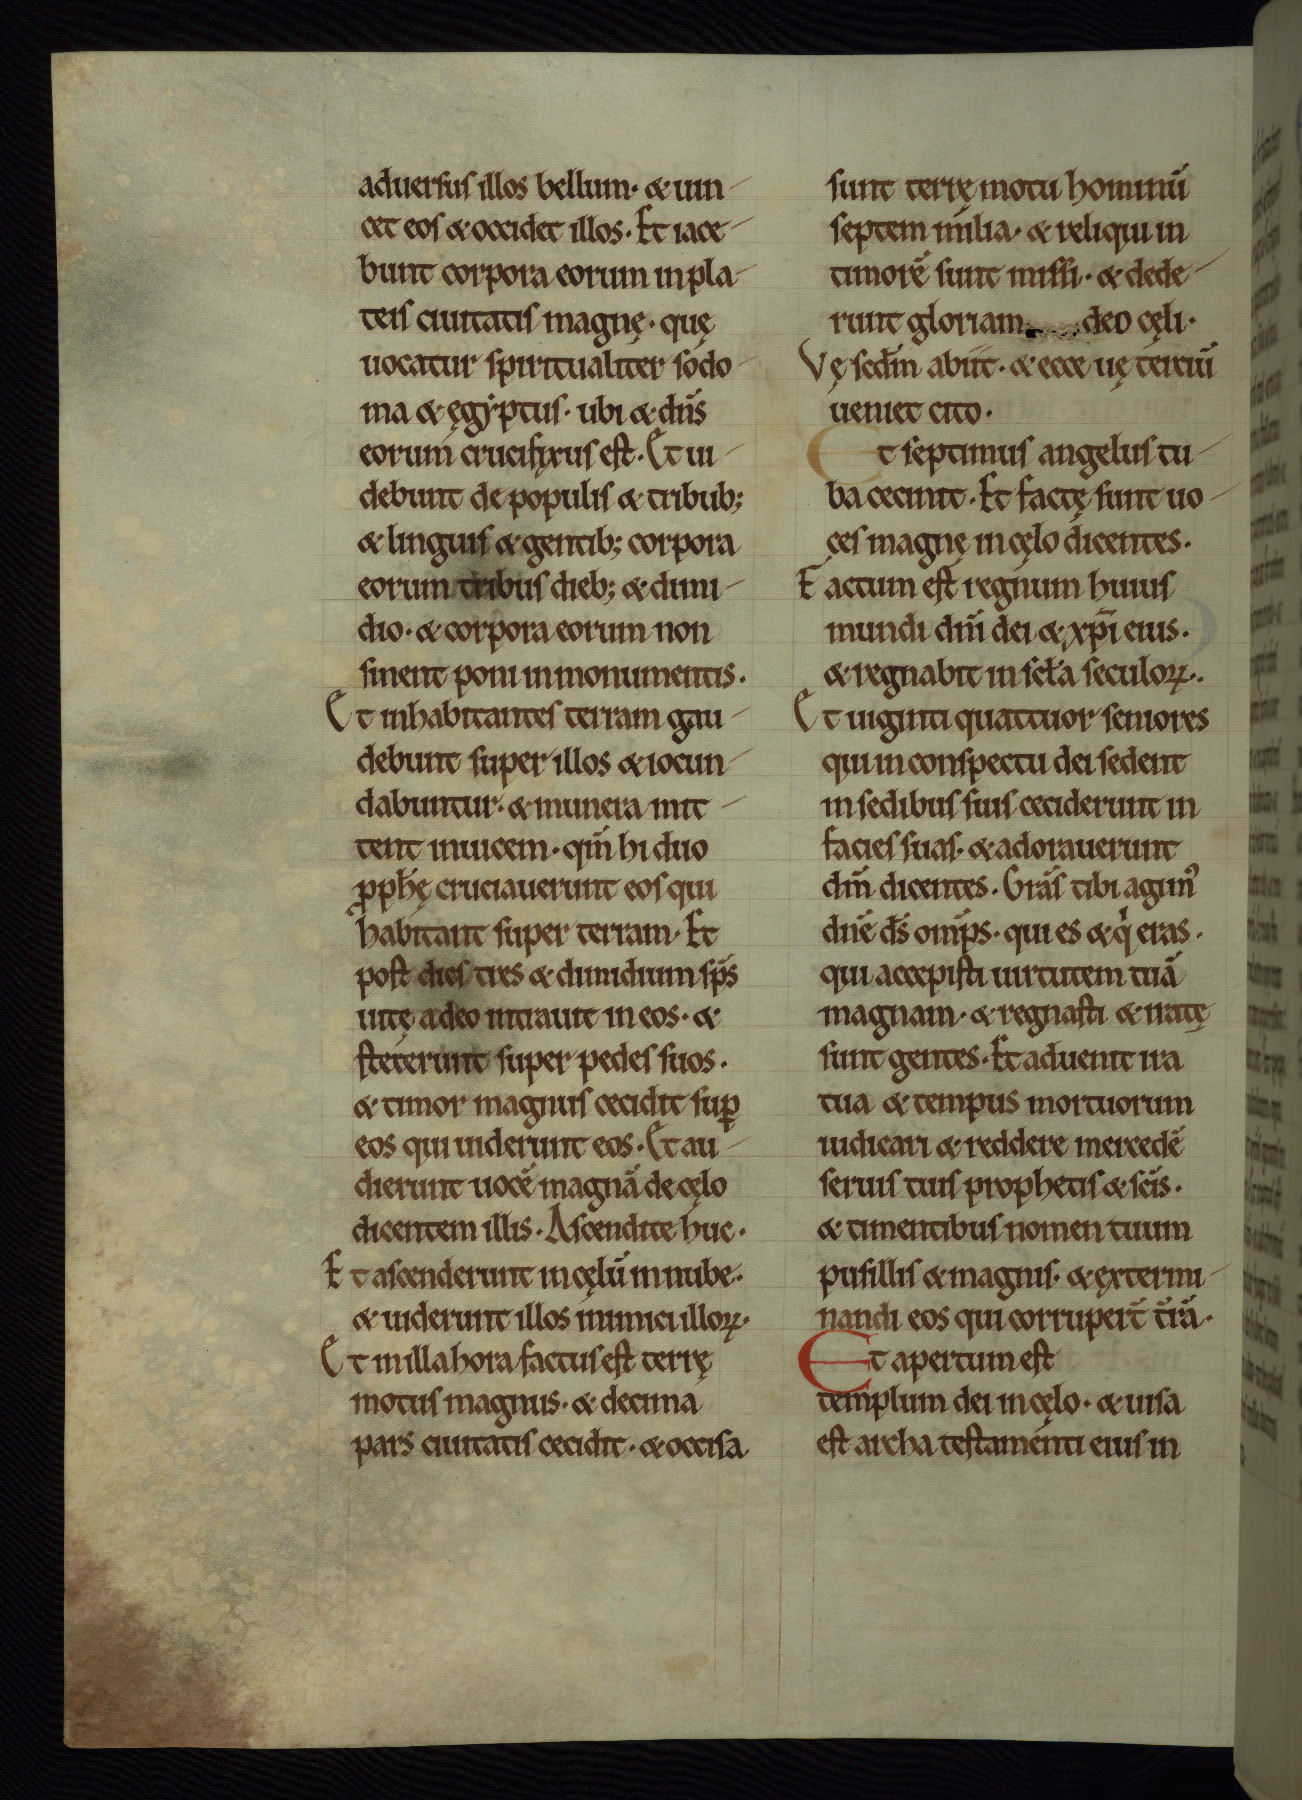 aduersus illos bellum· & uin-
cet eos & occidet illos. Et iace-
bunt corpora eorum in pla-
teis ciuitatis magnę· quę
uocatur spiritualiter sodo-
ma & ęgyptus· ubi & dn̄s
eorum crucifixus est. Et ui-
debunt de populis & tribub;
& linguis & gentib; corpora
eorum tribus dieb; & dimi-
dio· & corpora eorum non
sinent poni in monumentis.
Et inhabitantes terram gau-
debunt super illos & iocun-
dabuntur· & munera mit-
tent inuicem· qm̄ hi duo
ꝓph̄ę cruciauerunt eos qui
habitant super terram· Et
post dies tres & dimidium sp̄s
uitę a deo intrauit in eos· &
steterunt super pedes suos.
& timor magnus cecidit suꝑ
eos qui uiderunt eos. Et au-
dierunt uocē magnā de cęlo
dicentem illis. Ascendite huc.
Et ascenderunt in cęlū in nube.
& uiderunt illos inimici illoꝝ.
Et in illa hora factus est terrę
motus magnus· & decima
pars ciuitatis cecidit· & occisa
sunt terrę motu hominū
septem milia· & reliqui in
timorē sunt missi· & dede-
runt gloriam deo cęli·
Vę sedm̄ abiit· & ecce uę terciū
ueniet cito.
Et septimus angelus tu-
ba cecinit. Et factę sunt uo-
ces magnę in cęlo dicentes.
Factum est regnum huius
mundi dn̄i dei & xp̄i eius.
& regnabit in scła seculoꝝ.
Et uiginti quattuor seniores
qui in conspectu dei sedent
in sedibus suis ceciderunt in
facies suas· & adorauerunt
dn̄m dicentes. Grās tibi agimꝰ
dn̄e ds̄ omp̄s· qui es & qͥ eras.
qui accepisti uirtutem tuā
magnam· & regnasti & iratę
sunt gentes. Et aduenit ira
tua & tempus mortuorum
iudicari & reddere mercedē
seruis tuis prophetis & sc̄is.
& timentibus nomen tuum
pusillis & magnis· & extermi-
nandi eos qui corruper̄t tr̄ā.
Et apertum est
templum dei in cęlo· & uisa
est archa testamenti eius in